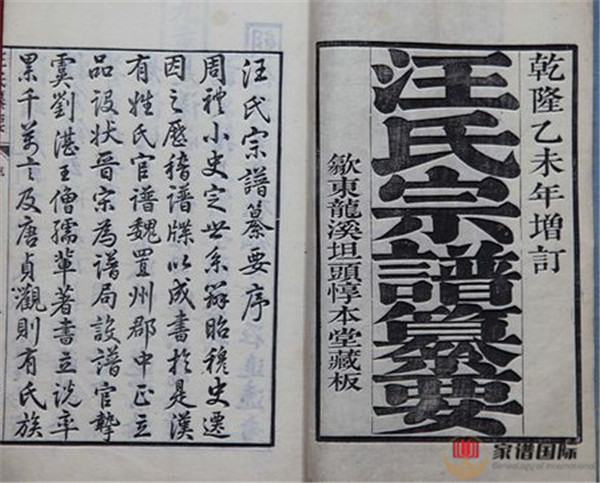 乾隆乙未年增訂
汪氏宗譜纂要
歙東龍溪坦頭惇本堂藏板
汪氏宗譜纂要序
周禮小史定世系辨昭穆史遷
因之歷稽譜牒以成書於是漢
有姓氏官譜魏置州郡中正立
品設狀晉宋為譜局設譜官摯
虞劉湛王僧孺輩著書立說率
累千萬言及唐貞觀則有氏族
家谱国际
Genealogy of International